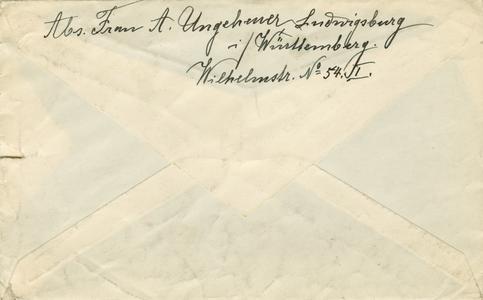 Abs. Frau A. Ungeheuer Ludwigsburg
i/Württemberg.
Wilhelmstr. No 54. II.